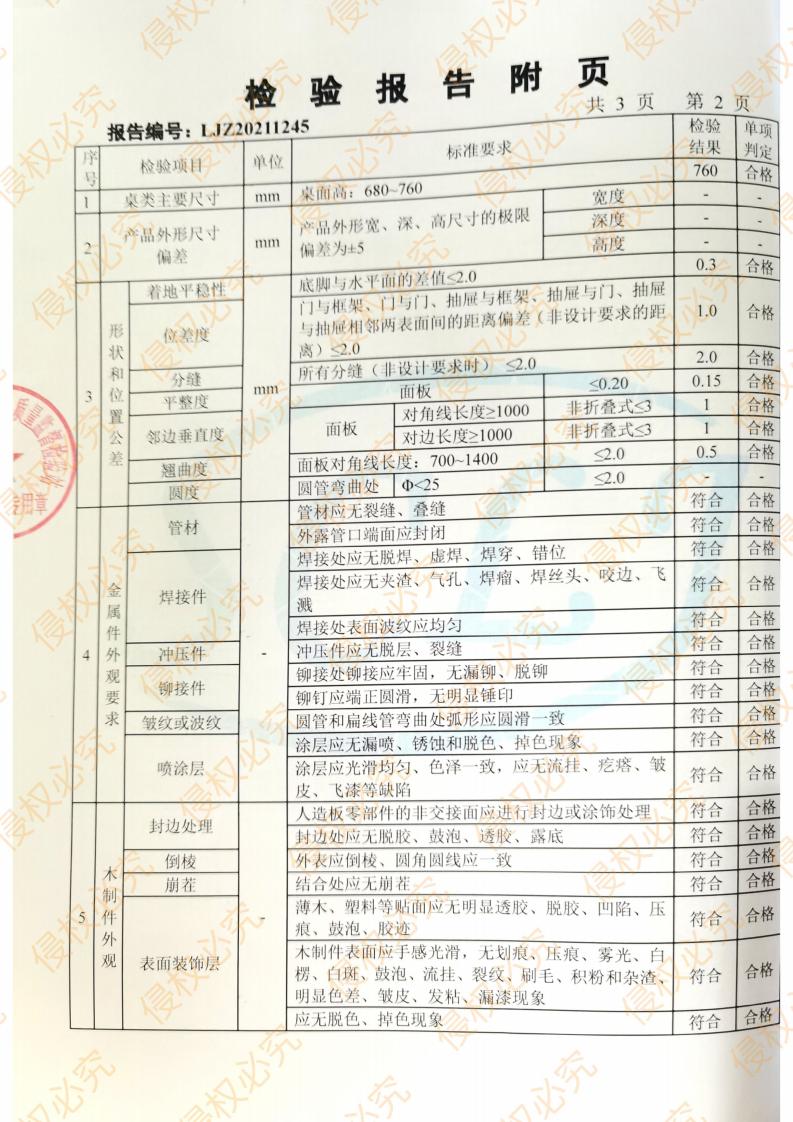 检验报告附页
共 3 页 第 2 页
报告编号：LJZ20211245
序号 检验项目 单位 标准要求 检验结果 单项判定
1 桌类主要尺寸 mm 桌面高：680~760 760 合格
2 产品外形尺寸偏差 mm 产品外形宽、深、高尺寸的极限偏差为±5 宽度 - -
深度 - -
高度 - -
3 形状和位置公差 mm 着地平稳性 底脚与水平面的差值≤2.0 0.3 合格
位差度 门与框架、门与门、抽屉与框架、抽屉与门、抽屉
与抽屉相邻两表面间的距离偏差（非设计要求的距
离）≤2.0 1.0 合格
分缝 所有分缝（非设计要求时） ≤2.0 2.0 合格
平整度 面板 ≤0.20 0.15 合格
邻边垂直度 面板 对角线长度≥1000 非折叠式≤3 1 合格
对边长度≥1000 非折叠式≤3 1 合格
翘曲度 面板对角线长度：700~1400 ≤2.0 0.5 合格
圆度 圆管弯曲处 Φ<25 ≤2.0 - -
4 金属件外观要求 - 管材 管材应无裂缝、叠缝 符合 合格
外露管口端面应封闭 符合 合格
焊接件 焊接处应无脱焊、虚焊、焊穿、错位 符合 合格
焊接处应无夹渣、气孔、焊瘤、焊丝头、咬边、飞
溅 符合 合格
焊接处表面波纹应均匀 符合 合格
冲压件 冲压件应无脱层、裂缝 符合 合格
铆接件 铆接处铆接应牢固，无漏铆、脱铆 符合 合格
铆钉应端正圆滑，无明显锤印 符合 合格
皱纹或波纹 圆管和扁线管弯曲处弧形应圆滑一致 符合 合格
喷涂层 涂层应无漏喷、锈蚀和脱色、掉色现象 符合 合格
涂层应光滑均匀、色泽一致，应无流挂、疙瘩、皱
皮、飞漆等缺陷 符合 合格
5 木制件外观 - 封边处理 人造板零部件的非交接面应进行封边或涂饰处理 符合 合格
封边处应无脱胶、鼓泡、透胶、露底 符合 合格
倒棱 外表应倒棱、圆角圆线应一致 符合 合格
崩茬 结合处应无崩茬 符合 合格
表面装饰层 薄木、塑料等贴面应无明显透胶、脱胶、凹陷、压
痕、鼓泡、胶迹 符合 合格
木制件表面应手感光滑，无划痕、压痕、雾光、白
楞、白斑、鼓泡、流挂、裂纹、刷毛、积粉和杂渣、
明显色差、皱皮、发粘、漏漆现象 符合 合格
应无脱色、掉色现象 符合 合格
质量监督检验
专用章
侵权必究